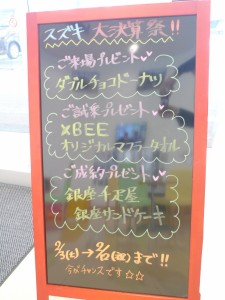 スズキ 大決算祭!!
ご来場プレゼント♥
ダブルチョコドーナツ
ご試乗プレゼント♥
XBEE
オリジナルマフラータオル
ご成約プレゼント♥
銀座千疋屋
銀座サンドケーキ
まで!!
今がチャンスです☆☆